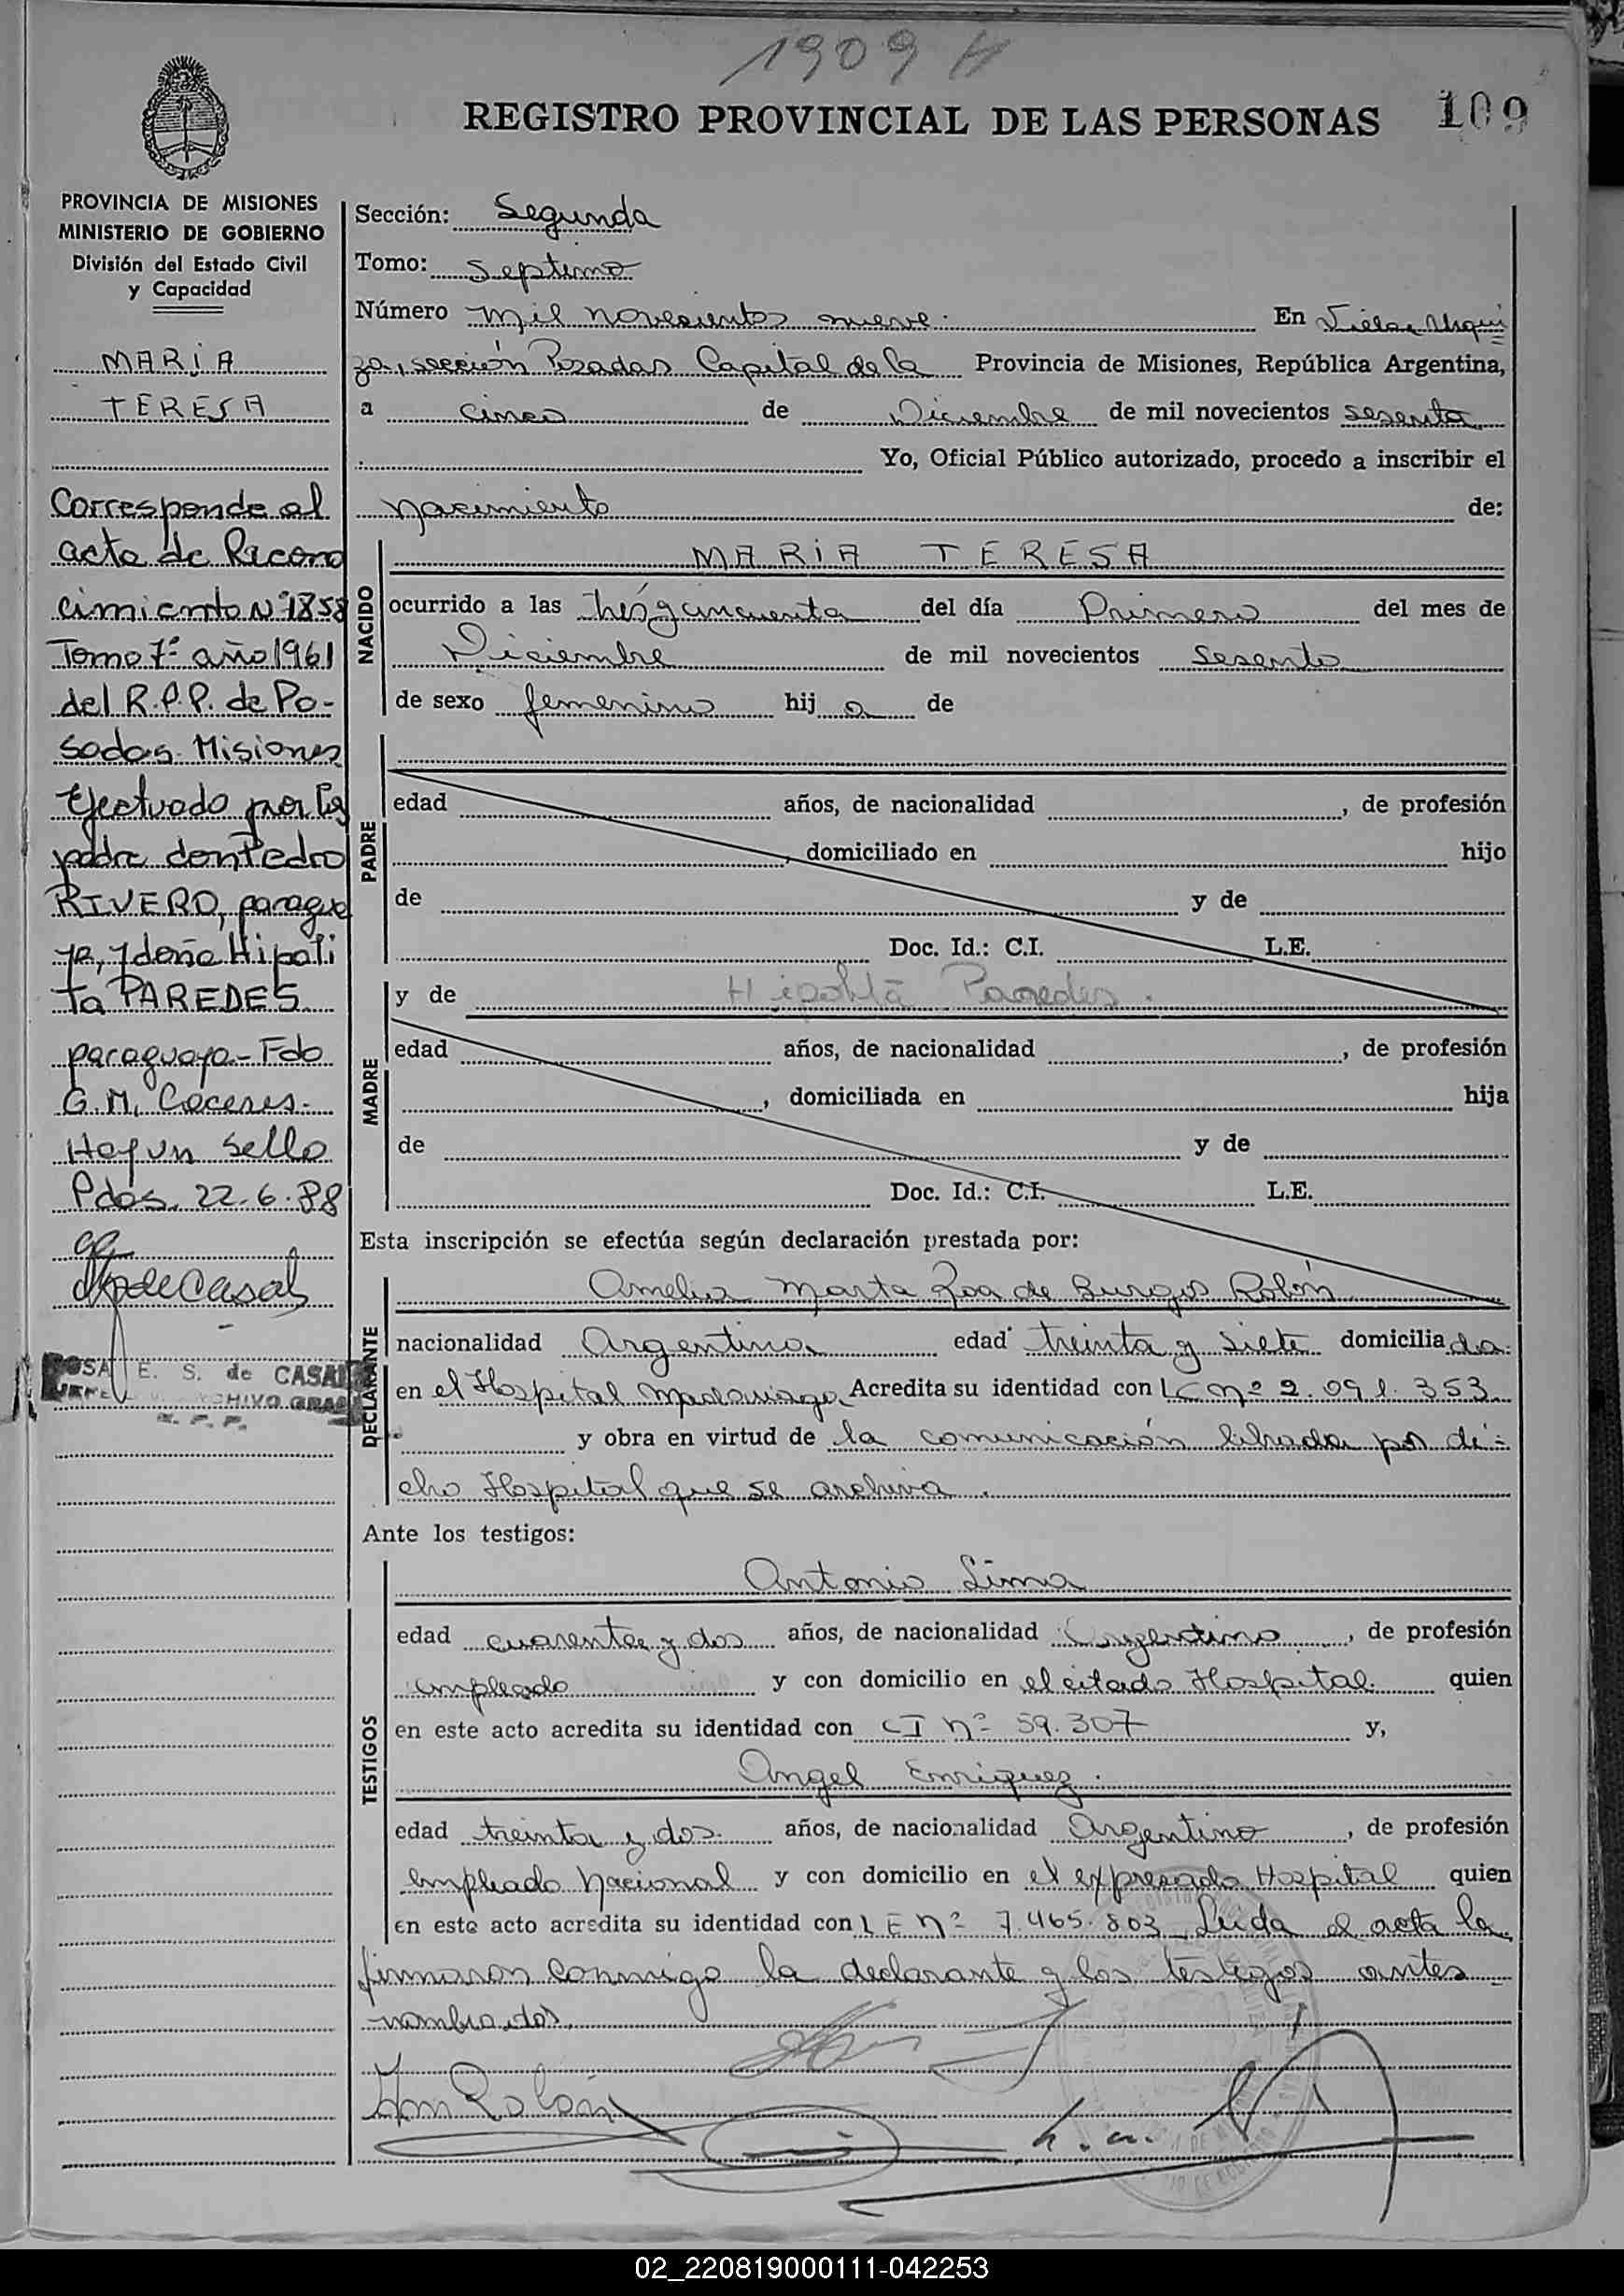 1909 H
REGISTRO PROVINCIAL DE LAS PERSONAS 109
PROVINCIA DE MISIONES
MINISTERIO DE GOBIERNO
División del Estado Civil
y Capacidad
MARIA
TERESA
Corresponde al
acta de Recono
cimiento Nº 1858
Tomo 7º año 1961
del R.P.P. de Po-
sadas Misiones
Efectuado por los
padre don Pedro
RIVERO, paragua
yo, y doña Hipoli
ta PAREDES
paraguaya - Fdo
G.M. Caceres.
Hay un sello
Pdas. 22.6.88
E. S. de CASAL
ARCHIVO GRAL
R. P. P.
Sección: Segunda
Tomo: Septimo
Número mil novecientos nueve. En Villa Urqui
za, sección Posadas Capital de la Provincia de Misiones, República Argentina,
a cinco de Diciembre de mil novecientos sesenta
Yo, Oficial Público autorizado, procedo a inscribir el
nacimiento de:
NACIDO
MARIA TERESA
ocurrido a las tres y cincuenta del día Primero del mes de
Diciembre de mil novecientos sesenta
de sexo femenino hij a de
PADRE
edad años, de nacionalidad , de profesión
, domiciliado en hijo
de y de
Doc. Id.: C.I. L.E.
y de Hipolita Paredes.
MADRE
edad años, de nacionalidad , de profesión
, domiciliada en hija
de y de
Doc. Id.: C.I. L.E.
Esta inscripción se efectúa según declaración prestada por:
DECLARANTE
Amelia Marta Roa de Burgos Rolón
nacionalidad Argentina edad treinta y siete domicilia da
en el Hospital Madariaga Acredita su identidad con LC nº 2.091.353
y obra en virtud de la comunicación librada por di-
cho Hospital que se archiva.
Ante los testigos:
TESTIGOS
Antonio Lima
edad cuarenta y dos años, de nacionalidad Argentino, de profesión
empleado y con domicilio en el citado Hospital quien
en este acto acredita su identidad con CI nº 59.307 y,
Angel Enriquez.
edad treinta y dos años, de nacionalidad Argentino, de profesión
empleado Nacional y con domicilio en el expresado Hospital quien
en este acto acredita su identidad con LE nº 7.465.803 Leida el acta la
firmaron conmigo la declarante y los testigos antes
nombrados.
02_220819000111-042253